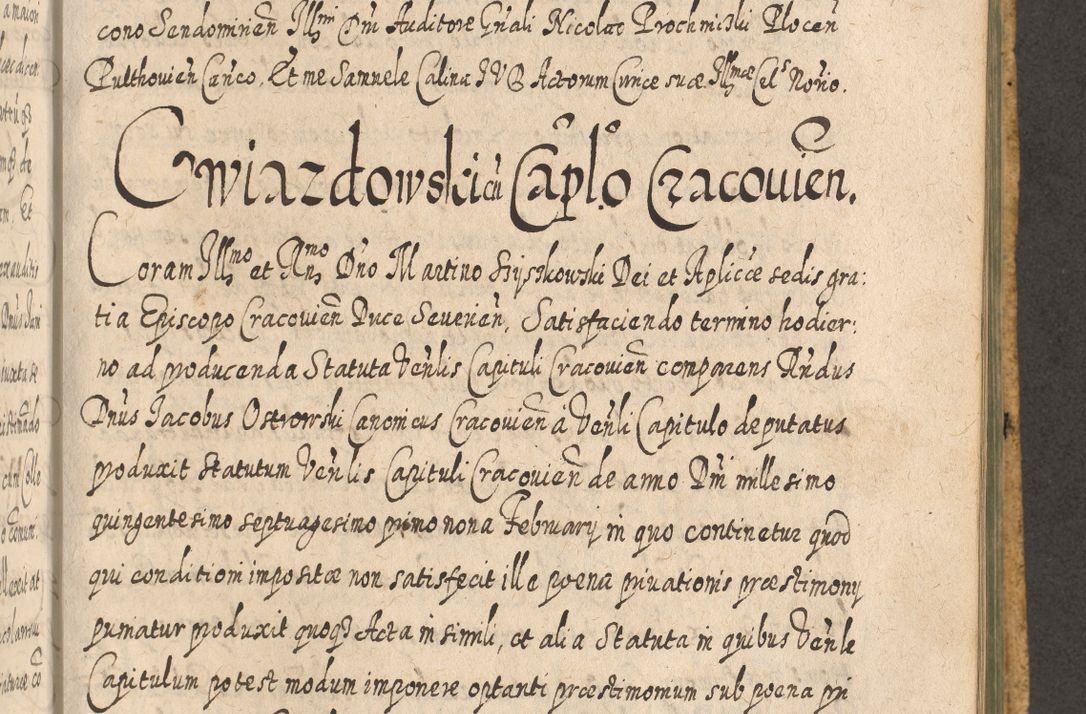 cono Sendomirien̄ Illmi Dn̄i Auditore Gn̄ali Nicolao Prochniski Plocen̄
Pulthovien̄ Can̄co. Et me Samuele Calina JVD Actorum Cur̄ce suæ Illmæ Cels Norio.
Gwiazdowski cū Cap̄lo Cracouien̄.
Coram Illmo et Rn̄mo Dn̄o Martino Szyszkowski Dei et Aplicæ sedis gra:
tia Episcopo Cracouien̄ Duce Severien̄, Satisfaciendo termino hodier:
no ad producenda Statuta Ven̄lis Capituli Cracouien̄ comparens Rn̄dus
Dn̄us Jacobus Ostrowski Canonicus Cracouien̄ à Ven̄li Capitulo deputatus
produxit Statutum Ven̄lis Capituli Cracouien̄ de anno Dn̄i millesimo
quingentesimo septuagesimo primo nona Februarij in quo continetur quod
qui conditioni impositæ non satisfecit ille poena priuationis præstimony
puniatur produxit quoqȝ Acta in simili, et alia Statuta in quibus Ven̄le
Capitulum potest modum imponere optanti præstimonium sub poena pri
a maiori
at
co